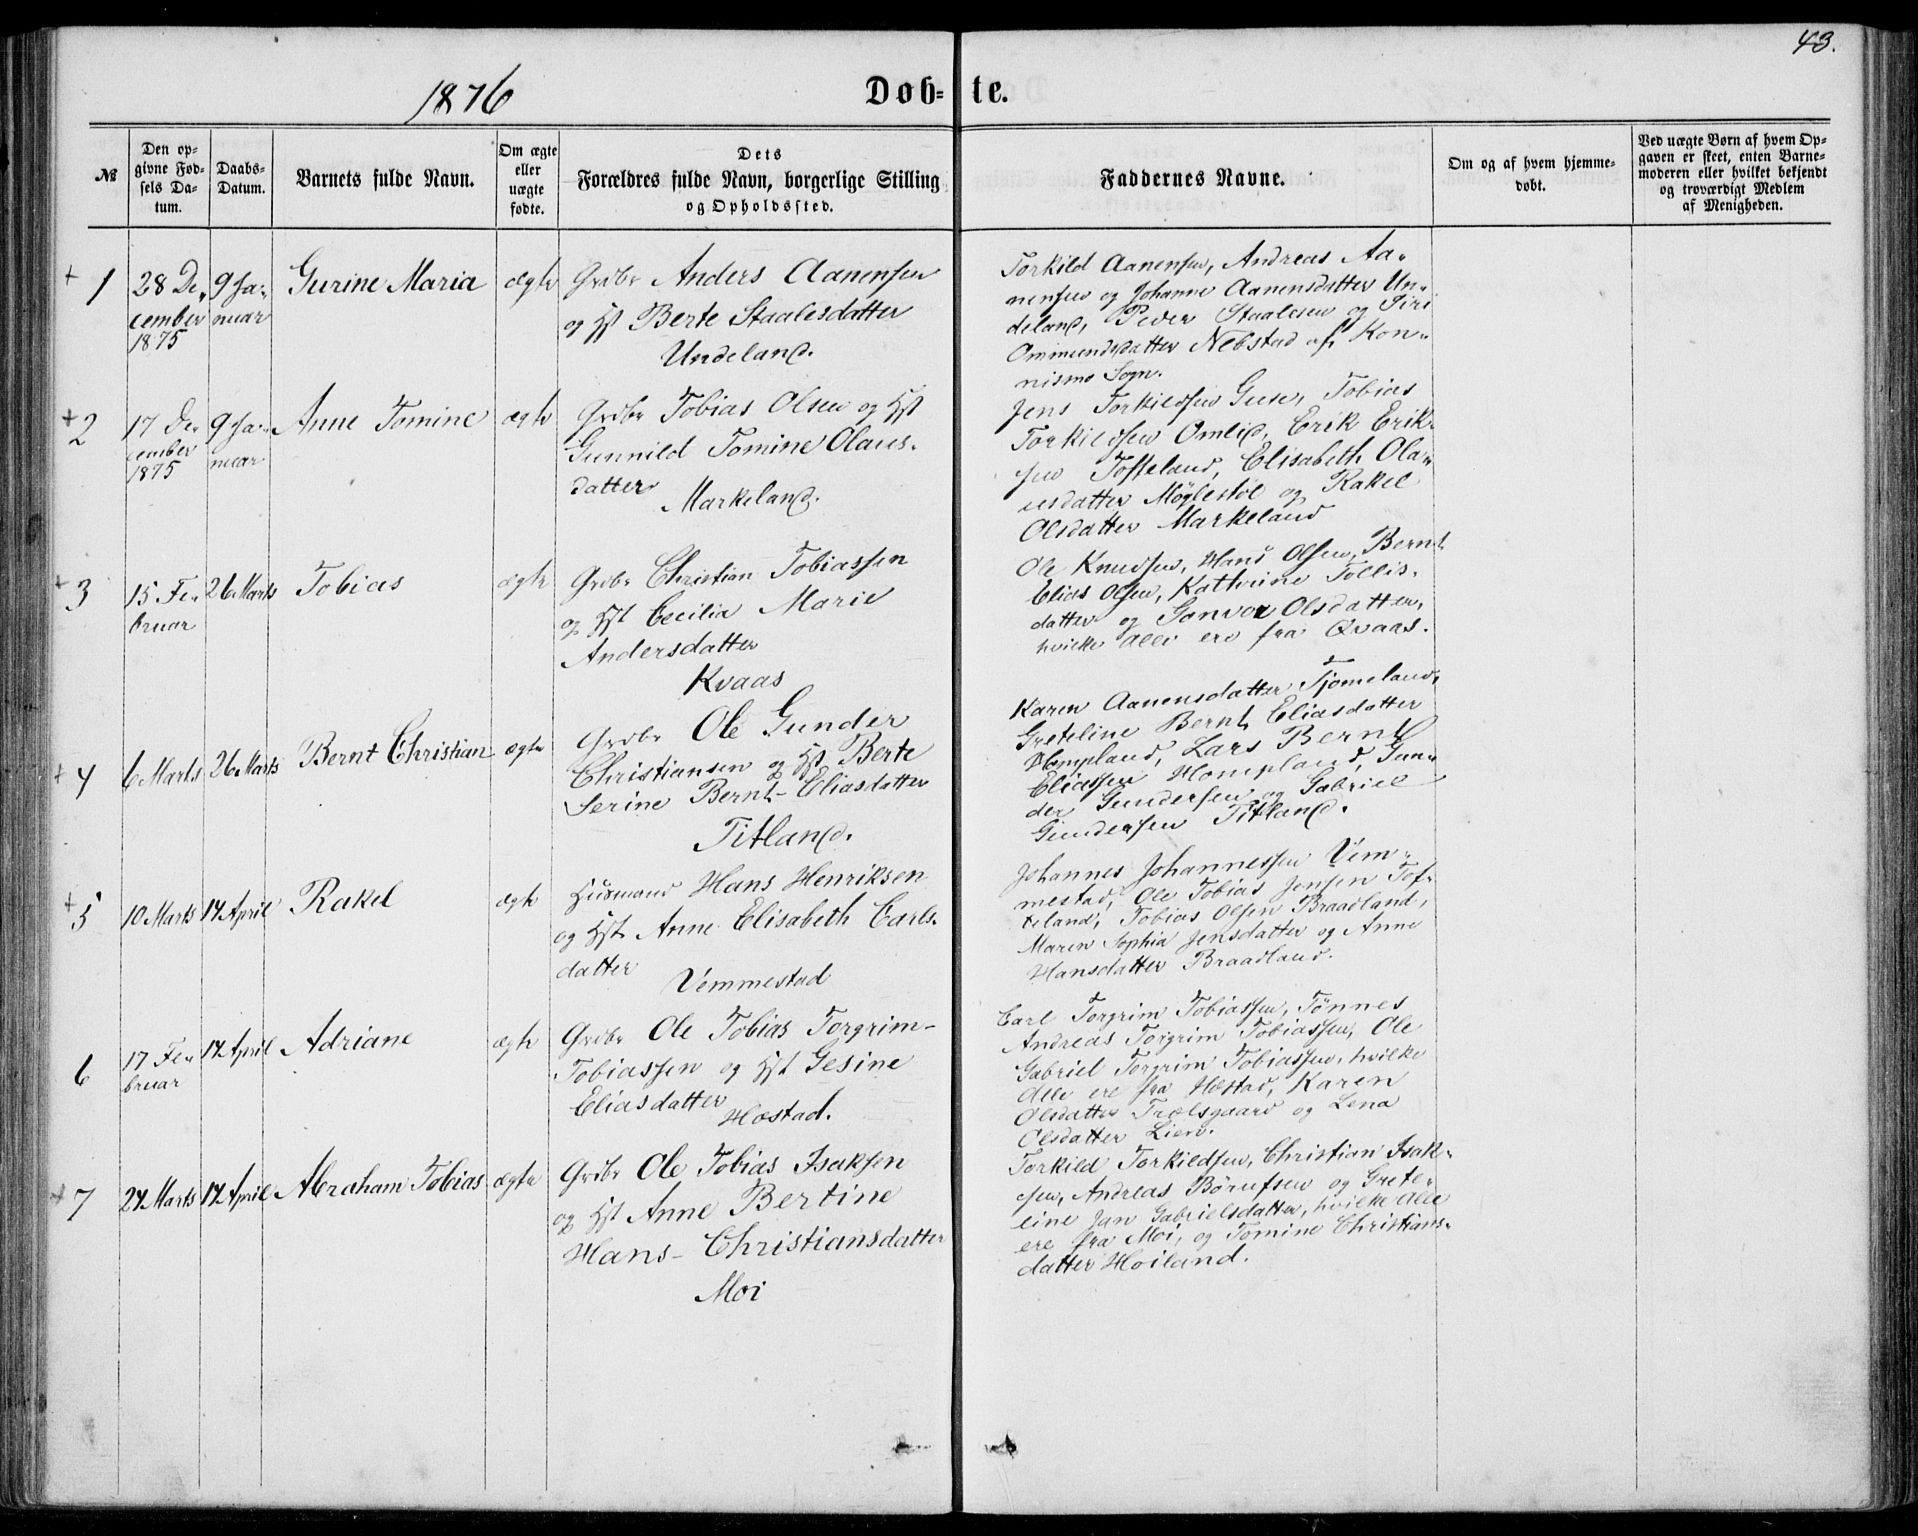 43.
1876
Døb-te.
№
Den op-
givne Fød-
sels Da-
tum.
Daabs-
Datum.
Barnets fulde Navn.
Om ægte
eller
uægte
fødte.
Dets
Forældres fulde Navn, borgerlige Stilling
og Opholdssted.
Faddernes Navne.
Om og af hvem hjemme-
døbt.
Ved uægte Børn af hvem Op-
gaven er skeet, enten Barne-
moderen eller hvilket bekjendt
og troværdigt Medlem
af Menigheden.
+ 1
28 De-
cember
1875
9 Ja-
nuar
Gurine Maria
ægte
Grdbr Anders Aanensen
og Hst Berte Staalesdatter
Undeland.
Torkild Aanensen, Andreas Aa-
nensen og Johanne Aanensdatter Un-
deland, Peder Staalesen og Siri
Ommundsdatter Nebstad af Kon-
nismo Sogn.
+ 2
17 De
cember
1875
9 Ja-
nuar
Anne Tomine
ægte
Grdbr Tobias Olsen og Hst
Gunnild Tomine Olaus-
datter
Markeland.
Jens Torkildsen Guse, Tobias
Torkildsen Omlid, Erik Erik-
sen Tofteland, Elisabeth Ola-
usdatter Møglestøl og Rakel
Olsdatter Markeland
+ 3
15 Fe-
bruar
26 Marts
Tobias
ægte
Grdbr Christian Tobiassen
og Hst Cecilia Marie
Andersdatter
Kvaas
Ole Knudsen, Hans Olsen, Bernt
Elias Olsen, Kathrine Tollis-
datter og Gonvor Olsdatter,
hvilke alle ere fra Qvaas.
+ 4
6 Marts
26 Marts
Bernt Christian
ægte
Grdbr Ole Gunder
Christiansen og Hst Berte
Serine Bernt-Eliasdatter
Titland.
Karen Aanensdatter Tjomeland,
Greteline Bernt Eliasdatter
Hompland, Lars Bernt
Eliassen Hompland, Gun-
der Gundersen og Gabriel
Gundersen Titland.
+ 5
10 Marts
14 April
Rakel
ægte
Husmand Hans Henriksen
og Hst Anne Elisabeth Carls-
datter
Vemmestad
Johannes Johannessen Vem-
mestad, Ole Tobias Jensen Tof-
teland, Tobias Olsen Braadland,
Maren Sophia Jensdatter og Anne
Hansdatter Braadland.
6
17 Fe-
bruar
14 April
Adriane
ægte
Grdbr Ole Tobias Torgrim-
Tobiassen og Hst Gesine
Eliasdatter
Hæstad.
Carl Torgrim Tobiassen, Tønnes
Andreas Torgrim Tobiassen, Ole
Gabriel Torgrim Tobiassen, hvilke
alle ere fra Hæstad, Karen
Olsdatter Trælsgaard og Lena
Olsdatter Lien.
+ 7
24 Marts
14 April
Abraham Tobias
ægte
Grdbr Ole Tobias Isaksen
og Hst Anne Bertine
Hans-Christiansdatter
Moi
Torkild Torkildsen, Christian Isak-
sen, Andreas Børufsen og Grete-
line Jan Gabrielsdatter, hvilke alle
ere fra Moi, og Tomine Christians-
datter Høiland.